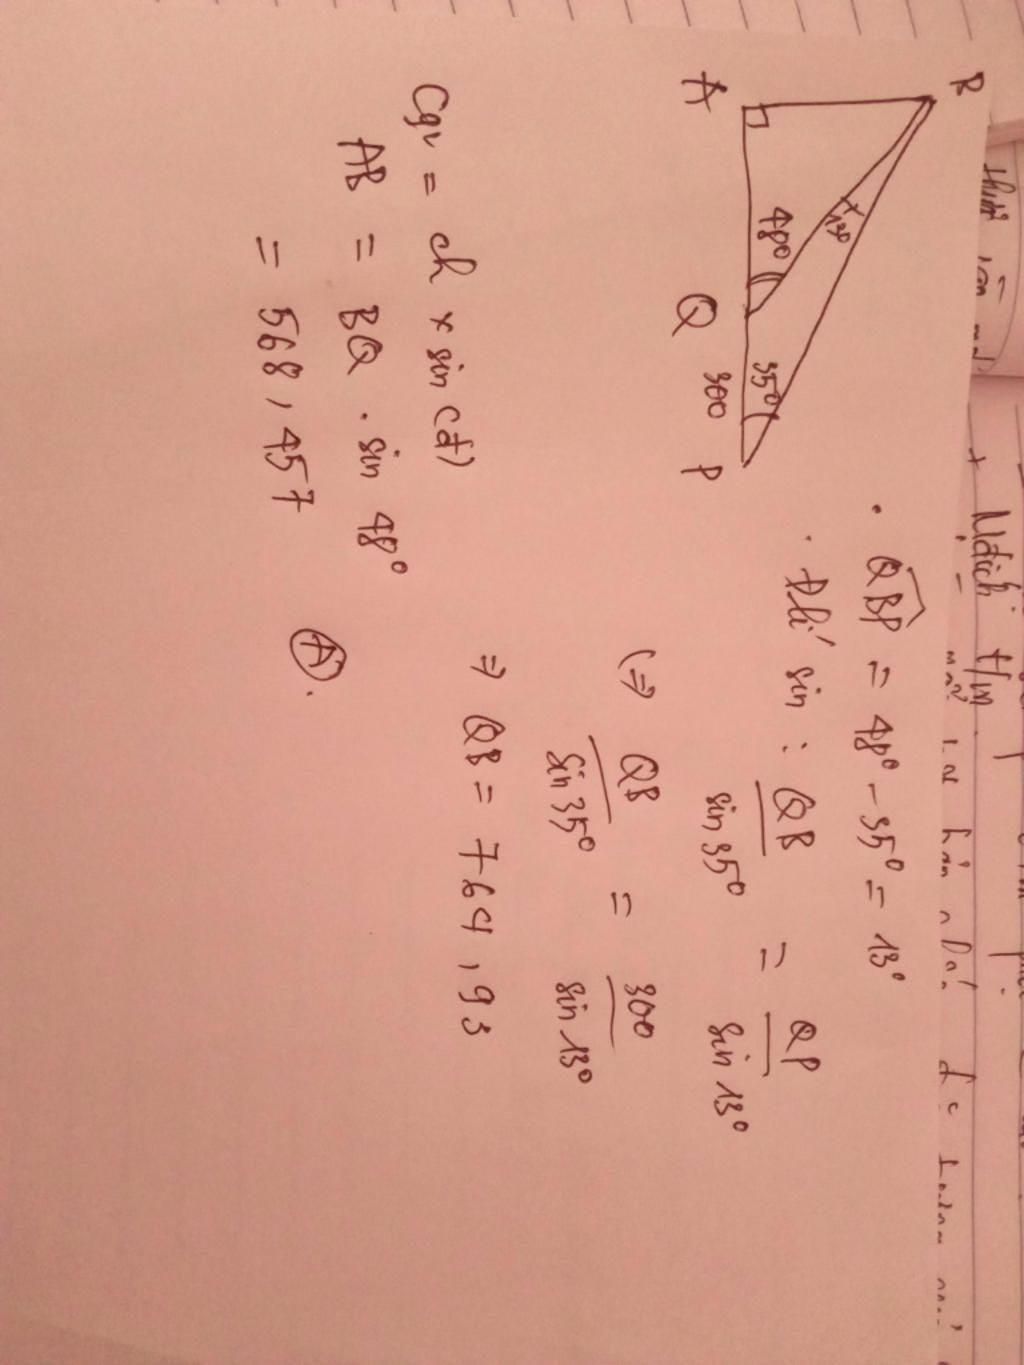 + Nđich t/m
B
A
Q
P
48°
35°
13°
300
. QBP = 48° - 35° = 13°
. Đlí sin : QB / sin 35° = QP / sin 13°
(=> QB / sin 35° = 300 / sin 13°
=> QB = 764,93
Cgv = ch x sin (đ)
AB = BQ . sin 48°
= 568,457
(A).